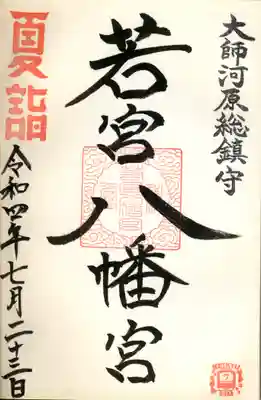 大師河原総鎮守
若宮八幡宮
夏詣
令和四年七月二十三日